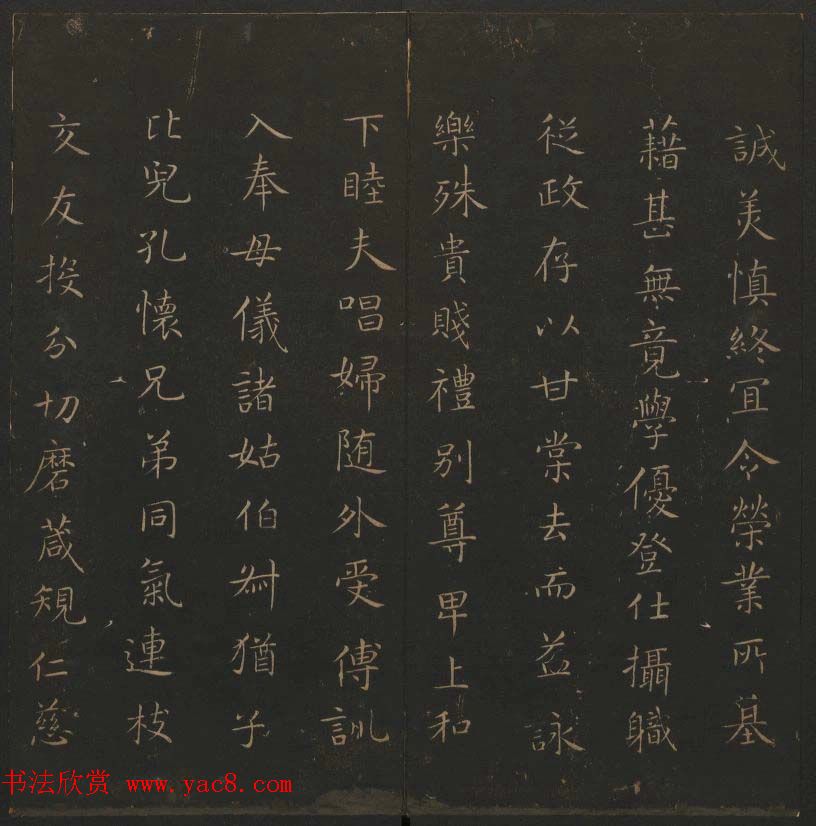 誠美慎終冝令榮業所基
藉甚無竟學優登仕攝職
從政存以甘棠去而益詠
樂殊貴賤禮別尊卑上和
下睦夫唱婦随外受傅訓
入奉母儀諸姑伯叔猶子
比兒孔懷兄弟同氣連枝
交友投分切磨葴規仁慈
书法欣赏 www.yac8.com